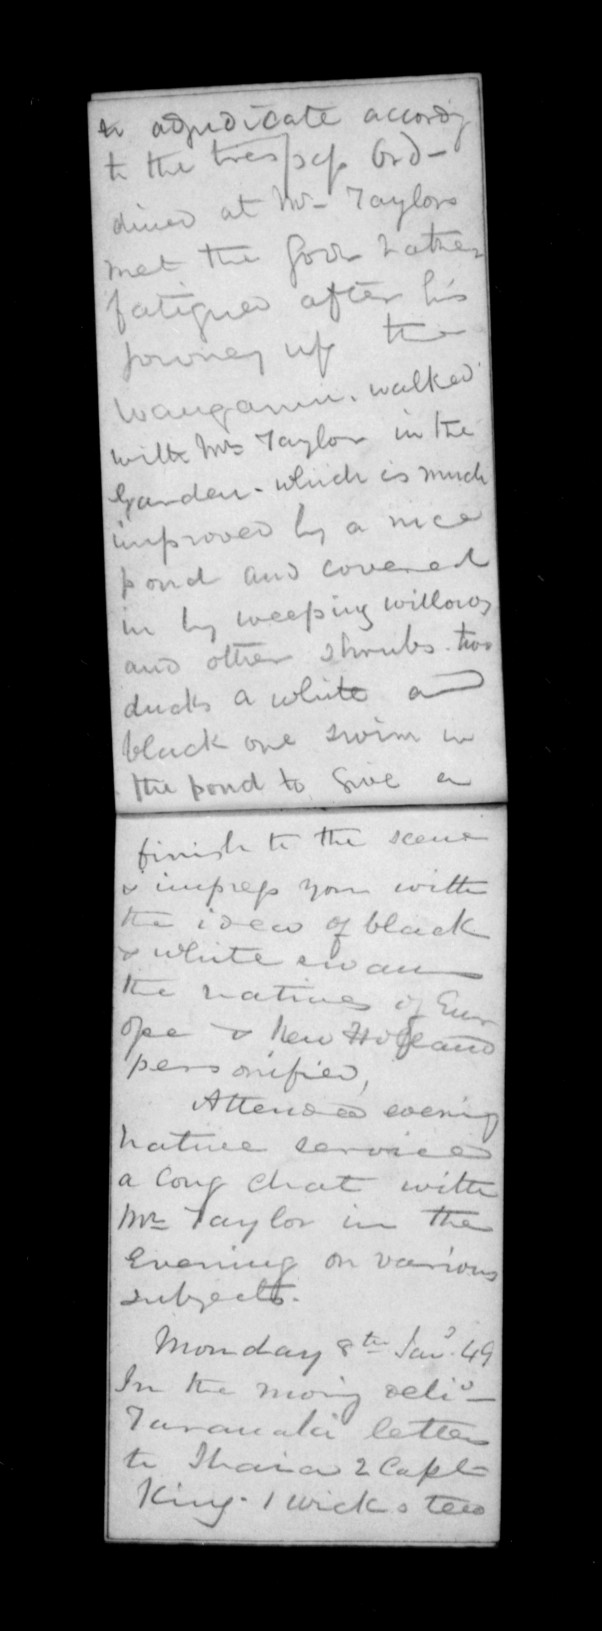 to adjudicate accordg
to the trespass Ord-
dined at Mr Taylors
met the Govr rather
fatigued after his
journey up the
Wanganui. walked
with Mrs Taylor in the
Garden. which is much
improved by a nice
pond and covered
in by weeping willows
and other shrubs. two
ducks a white and
black one swim in
the pond to give a
finish to the scene
& impress you with
the idea of black
& white swans
the natives of Eur
ope & New Holland
personified,
Attended evening
native service
a long chat with
Mr Taylor in the
Evening on various
subjects.
Monday 8th Jany. 49
In the morng deliv-
Taranaki letters
to Ihaia & Capt
King. 1